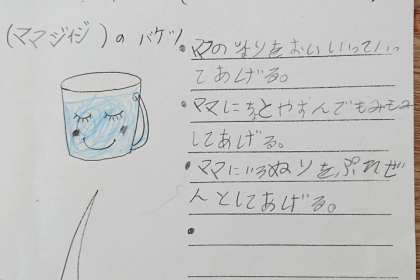 (ママジイジ)のバケツ
• ママのはりをおいいっていっ
てあげる。
• ママにちとやすんでもみもみ
してあげる。
• ママにいろぬりをぷれぜ
んとしてあげる。
•